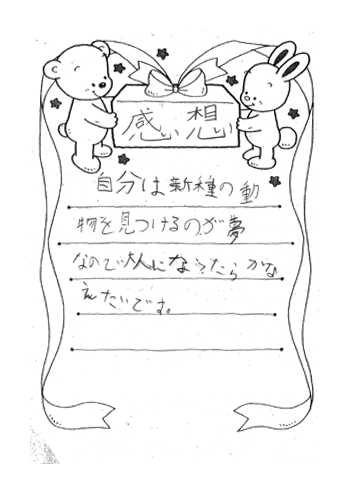 感想
自分は新種の動
物を見つけるのが夢
なので大人になったらかな
えたいです。